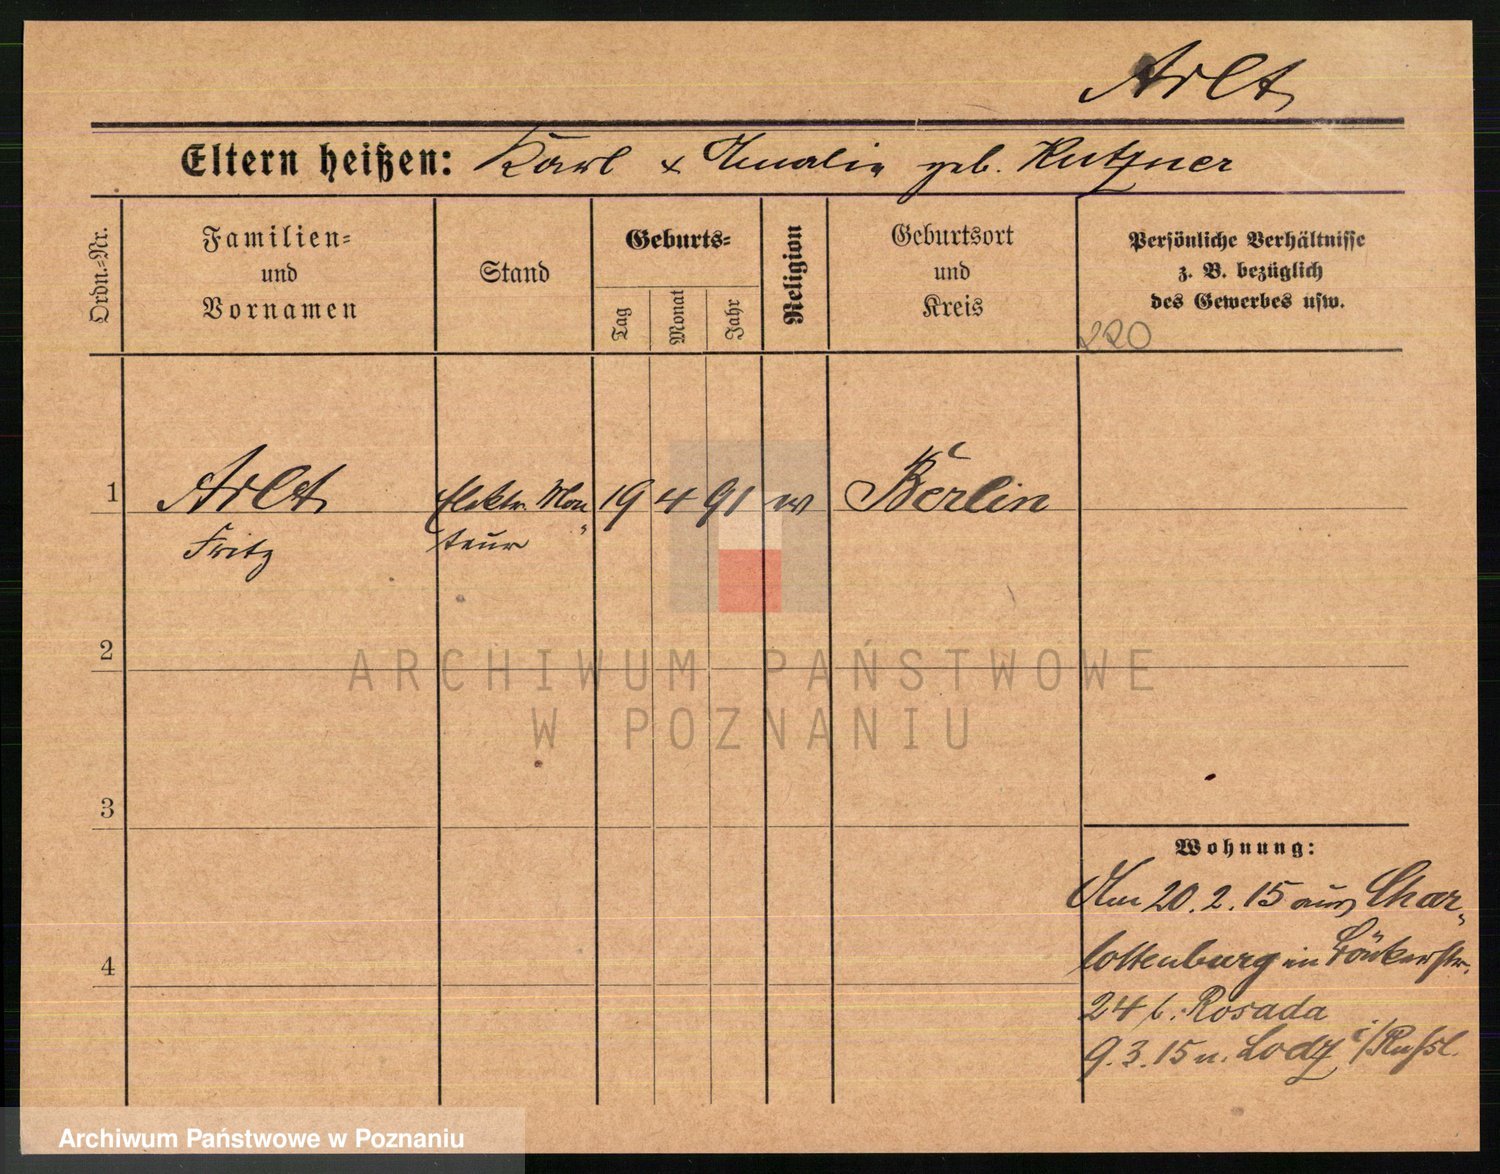 Arlt
Eltern heißen: Karl & Amalie geb. Kutzner
Ordn.-Nr.
Familien-
und
Vornamen
Stand
Geburts-
Tag
Monat
Jahr
Religion
Geburtsort
und
Kreis
Persönliche Verhältnisse
z. B. bezüglich
des Gewerbes usw.
220
1 Arlt Elektr. Mon- 19 4 91 ev Berlin
Fritz teur
2
ARCHIWUM PAŃSTWOWE
W POZNANIU
3
Wohnung:
Am 20.2.15 aus Char-
4 lottenburg in
24 b. Rosada
9.3.15 n. Lodz i/Rußl.
Archiwum Państwowe w Poznaniu